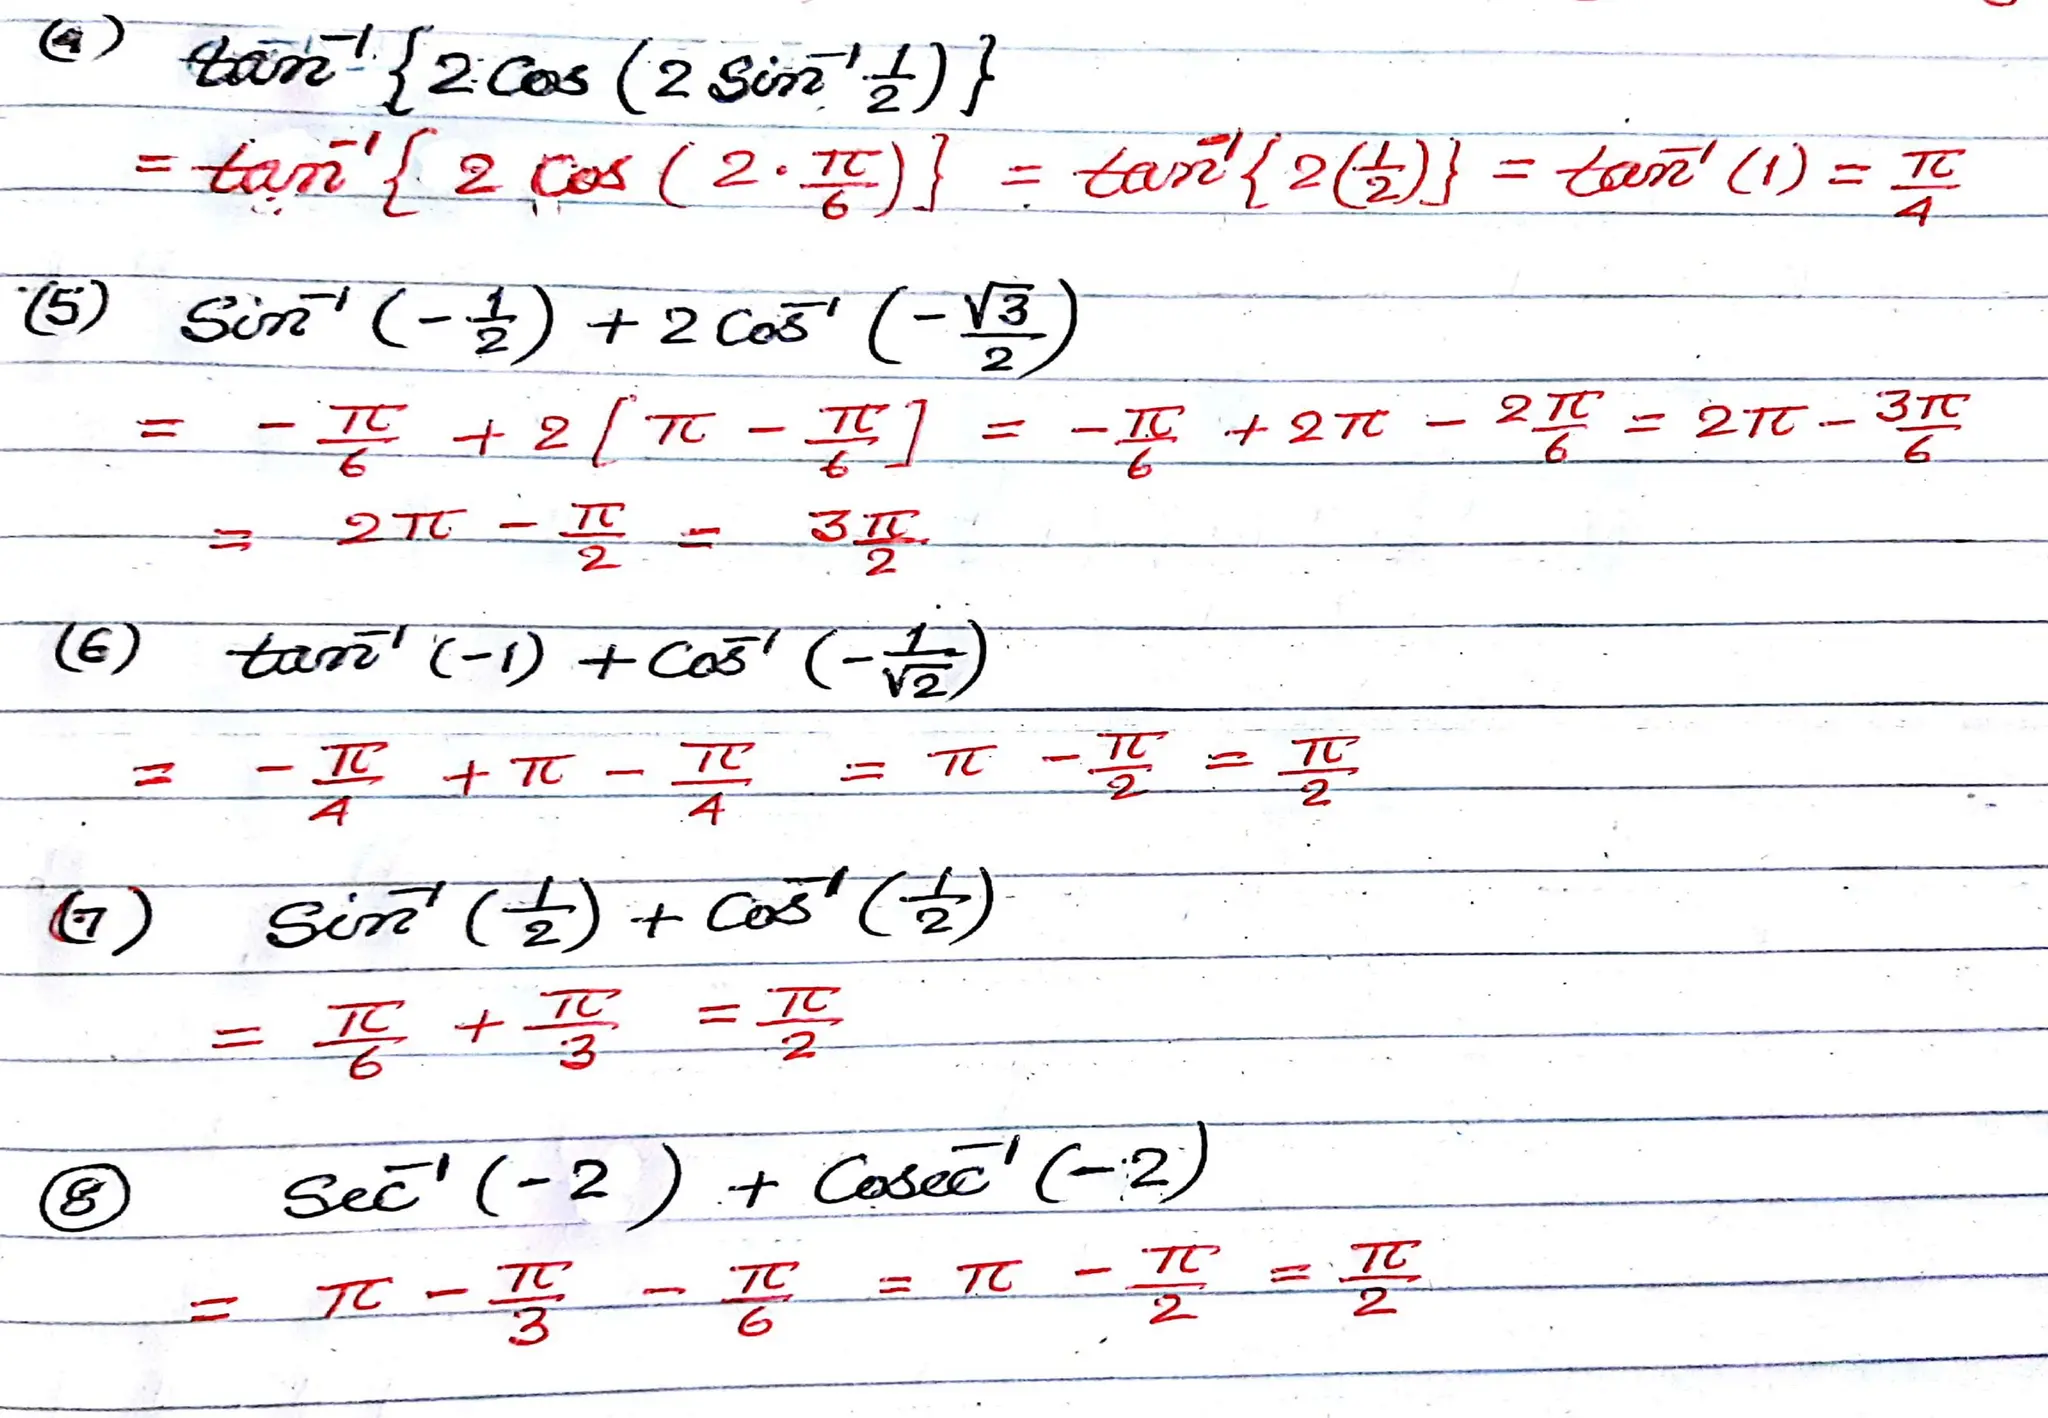 (4) tan⁻¹{2 Cos (2 Sin⁻¹ 1/2)}
= tan⁻¹{ 2 Cos ( 2 · π/6 )} = tan⁻¹{ 2(1/2)} = tan⁻¹ (1) = π/4
(5) Sin⁻¹ (-1/2) + 2 Cos⁻¹ (-√3/2)
= - π/6 + 2 [ π - π/6 ] = - π/6 + 2π - 2π/6 = 2π - 3π/6
= 2π - π/2 = 3π/2
(6) tan⁻¹ (-1) + Cos⁻¹ (-1/√2)
= - π/4 + π - π/4 = π - π/2 = π/2
(7) Sin⁻¹ (1/2) + Cos⁻¹ (1/2)
= π/6 + π/3 = π/2
⑧ Sec⁻¹ (-2) + Cosec⁻¹ (-2)
= π - π/3 - π/6 = π - π/2 = π/2